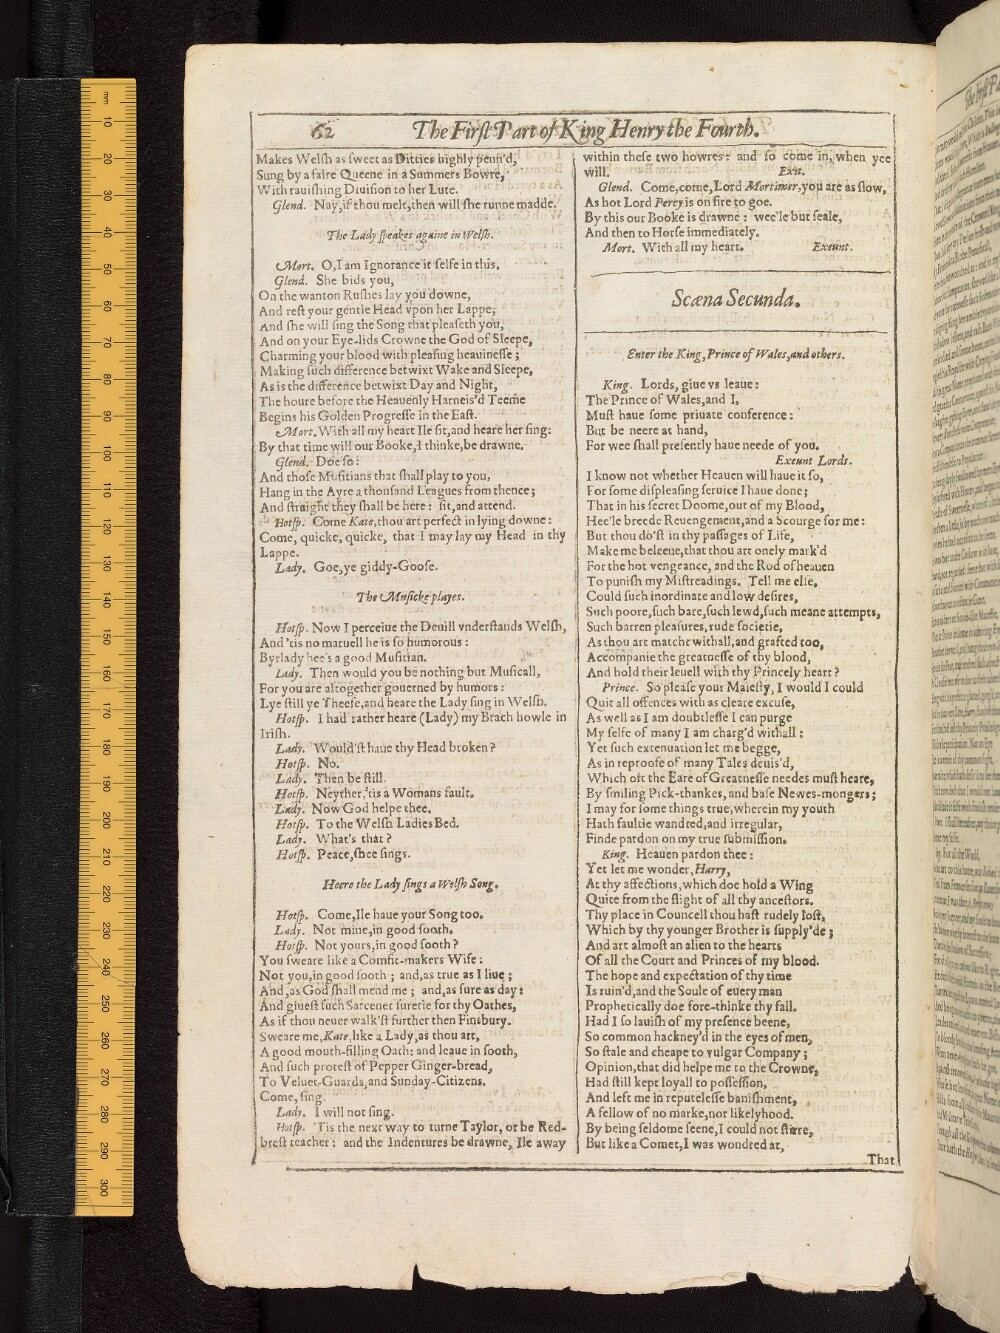 62
The First Part of King Henry the Fourth.
Makes Welsh as sweet as Ditties highly penn'd,
Sung by a faire Queene in a Summers Bowre,
With rauishing Diuision to her Lute.
Glend. Nay, if thou melt, then will she runne madde.
The Lady speakes againe in Welsh.
Mort. O, I am Ignorance it selfe in this.
Glend. She bids you,
On the wanton Rushes lay you downe,
And rest your gentle Head vpon her Lappe,
And she will sing the Song that pleaseth you,
And on your Eye-lids Crowne the God of Sleepe,
Charming your blood with pleasing heauinesse;
Making such difference betwixt Wake and Sleepe,
As is the difference betwixt Day and Night,
The houre before the Heauenly Harneis'd Teeme
Begins his Golden Progresse in the East.
Mort. With all my heart Ile sit, and heare her sing:
By that time will our Booke, I thinke, be drawne.
Glend. Doe so:
And those Musitians that shall play to you,
Hang in the Ayre a thousand Leagues from thence;
And straight they shall be here: sit, and attend.
Hotsp. Come Kate, thou art perfect in lying downe:
Come, quicke, quicke, that I may lay my Head in thy
Lappe.
Lady. Goe, ye giddy-Goose.
The Musicke playes.
Hotsp. Now I perceiue the Deuill vnderstands Welsh,
And 'tis no maruell he is so humorous:
Byrlady hee's a good Musitian.
Lady. Then would you be nothing but Musicall,
For you are altogether gouerned by humors:
Lye still ye Theefe, and heare the Lady sing in Welsh.
Hotsp. I had rather heare (Lady) my Brach howle in
Irish.
Lady. Would'st haue thy Head broken?
Hotsp. No.
Lady. Then be still.
Hotsp. Neyther, 'tis a Womans fault.
Lady. Now God helpe thee.
Hotsp. To the Welsh Ladies Bed.
Lady. What's that?
Hotsp. Peace, shee sings.
Heere the Lady sings a Welsh Song.
Hotsp. Come, Ile haue your Song too.
Lady. Not mine, in good sooth.
Hotsp. Not yours, in good sooth?
You sweare like a Comfit-makers Wife:
Not you, in good sooth; and, as true as I liue;
And, as God shall mend me; and, as sure as day:
And giuest such Sarcenet suretie for thy Oathes,
As if thou neuer walk'st further then Finsbury.
Sweare me, Kate, like a Lady, as thou art,
A good mouth-filling Oath: and leaue in sooth,
And such protest of Pepper Ginger-bread,
To Veluet-Guards, and Sunday-Citizens.
Come, sing.
Lady. I will not sing.
Hotsp. 'Tis the next way to turne Taylor, or be Red-
brest teacher: and the Indentures be drawne, Ile away
within these two howres: and so come in, when yee
will. Exit.
Glend. Come, come, Lord Mortimer, you are as slow,
As hot Lord Percy is on fire to goe.
By this our Booke is drawne: wee'le but seale,
And then to Horse immediately.
Mort. With all my heart. Exeunt.
Scæna Secunda.
Enter the King, Prince of Wales, and others.
King. Lords, giue vs leaue:
The Prince of Wales, and I,
Must haue some priuate conference:
But be neere at hand,
For wee shall presently haue neede of you.
Exeunt Lords.
I know not whether Heauen will haue it so,
For some displeasing seruice I haue done;
That in his secret Doome, out of my Blood,
Hee'le breede Reuengement, and a Scourge for me:
But thou do'st in thy passages of Life,
Make me beleeue, that thou art onely mark'd
For the hot vengeance, and the Rod of heauen
To punish my Mistreadings. Tell me else,
Could such inordinate and low desires,
Such poore, such bare, such lewd, such meane attempts,
Such barren pleasures, rude societie,
As thou art matcht withall, and grafted too,
Accompanie the greatnesse of thy blood,
And hold their leuell with thy Princely heart?
Prince. So please your Maiesty, I would I could
Quit all offences with as cleare excuse,
As well as I am doubtlesse I can purge
My selfe of many I am charg'd withall:
Yet such extenuation let me begge,
As in reproofe of many Tales deuis'd,
Which oft the Eare of Greatnesse needes must heare,
By smiling Pick-thankes, and base Newes-mongers;
I may for some things true, wherein my youth
Hath faultie wandred, and irregular,
Finde pardon on my true submission.
King. Heauen pardon thee:
Yet let me wonder, Harry,
At thy affections, which doe hold a Wing
Quite from the flight of all thy ancestors.
Thy place in Councell thou hast rudely lost,
Which by thy younger Brother is supply'de;
And art almost an alien to the hearts
Of all the Court and Princes of my blood.
The hope and expectation of thy time
Is ruin'd, and the Soule of euery man
Prophetically doe fore-thinke thy fall.
Had I so lauish of my presence beene,
So common hackney'd in the eyes of men,
So stale and cheape to vulgar Company;
Opinion, that did helpe me to the Crowne,
Had still kept loyall to possession,
And left me in reputelesse banishment,
A fellow of no marke, nor likelyhood.
By being seldome seene, I could not stirre,
But like a Comet, I was wondred at,
That
mm
10
20
30
40
50
60
70
80
90
100
110
120
130
140
150
160
170
180
190
200
210
220
230
240
250
260
270
280
290
300